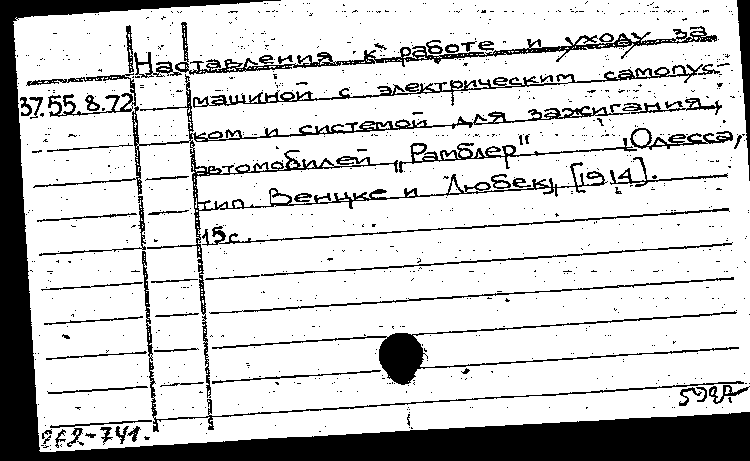 Наставления к работе и уходу за
37.55.8.72. машиной с электрическим самопус-
ком и системой для зажигания,
автомобилей „Рамблер". Одесса,
тип. Венцке и Любек, [1914].
15с.
262-741.